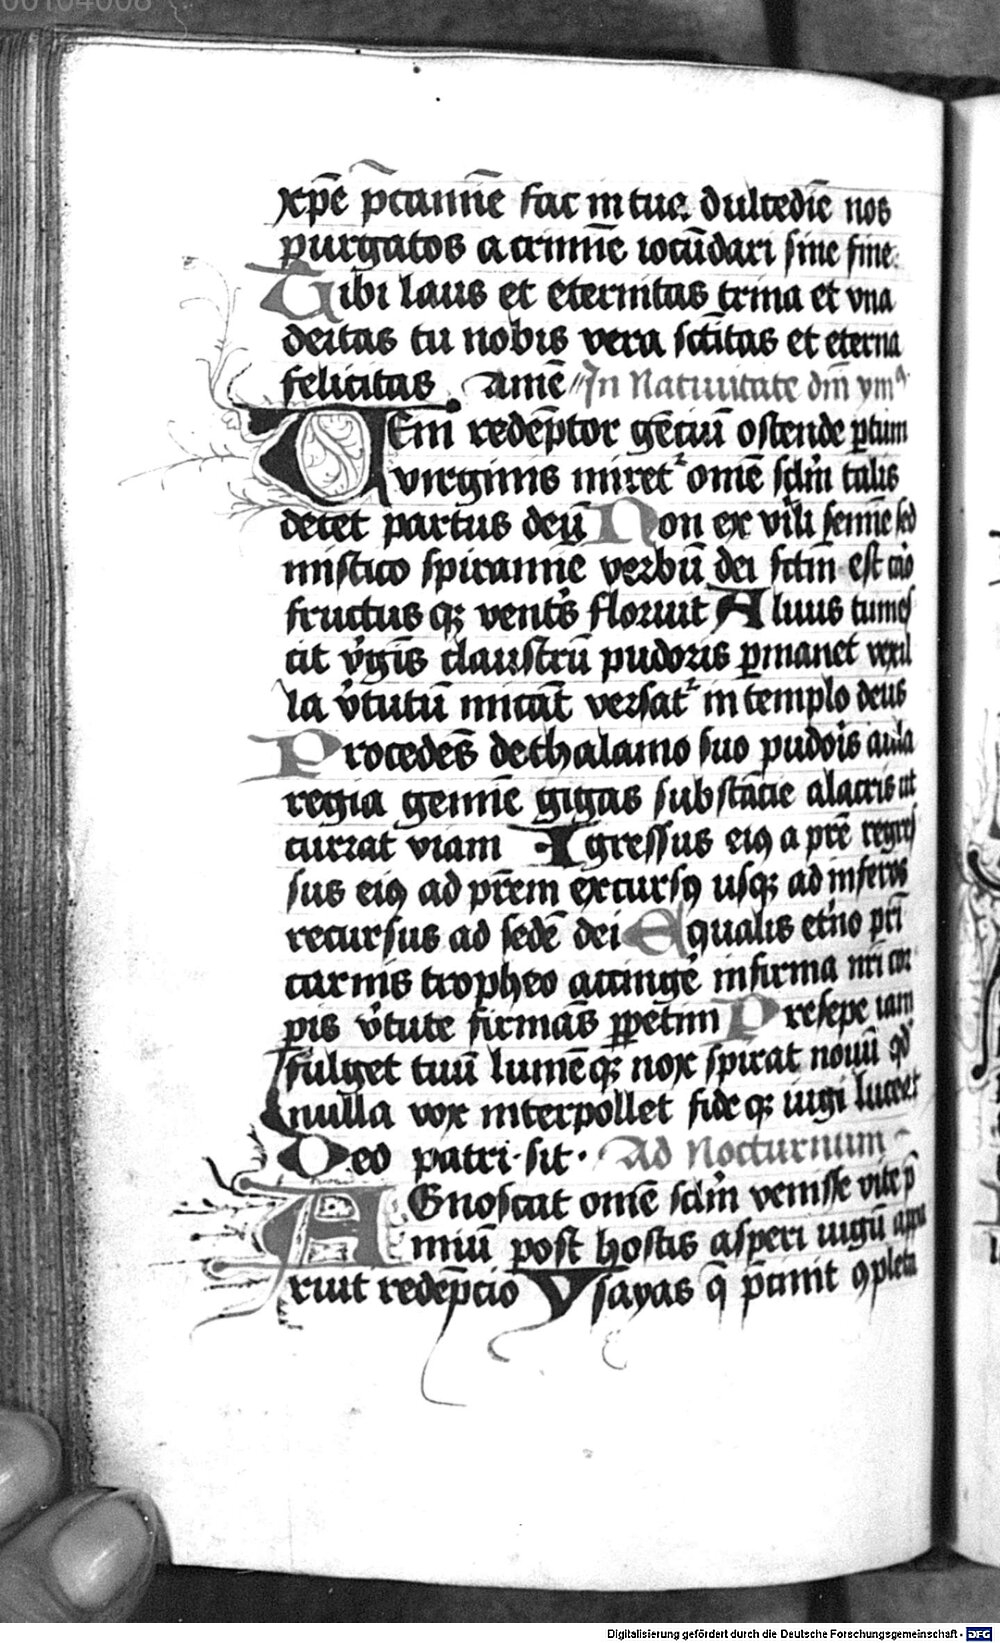 00104008
xp̄e p̄camīe fac in tue dulcedīe nos
purgatos a crimīe iocūdari sine fine
Tibi laus et eternitas trina et vna
deitas tu nobis vera sc̄titas et eterna
felicitas Amē In Natiuitate dn̄i ymꝰ
Veni redēptor gēciū ostende ptum
virginis miret᷑ omē sclm̄ talis
decet partus deū Non ex virili semīe sed
mistico spiramīe verbū dei fctm̄ est caro
fructus qꝫ vent̾s floruit Aluus tumes
cit v̾gīs claustrū pudoris ꝑmanet vexil
la v̾tutū micāt versat᷑ in templo deus
Procedēs de thalamo suo pudoris aula
regia gemīe gigas substācie alacris ut
currat viam Egressus eiꝯ a pr̄e regres
sus eiꝯ ad pr̄em excursꝯ usqꝫ ad inferos
recursus ad sedē dei Equalis et̾no pr̄i
carnis tropheo accinge̾ infirma nr̄i cor
pis v̾tute firmās ꝑpetim Presepe iam
fulget tuū lumēqꝫ nox spirat nouū qd̾
nulla nox interpollet fide qꝫ iugi luceat
Deo patri sit Ad Nocturnum
Agnoscat omē sclm̄ venisse vite p̄
miū post hostis asperi iugū appa
ruit redēpcio Ysayas q̄ p̄cinit ꝯpleta
Digitalisierung gefördert durch die Deutsche Forschungsgemeinschaft - DFG